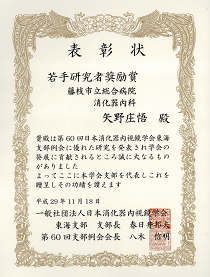 表彰状
若手研究者奨励賞
藤枝市立総合病院
消化器内科
矢野庄悟 殿
貴職は第60回日本消化器内視鏡学会東海
支部例会に優れた研究を発表され学会の
発展に貢献されるところ誠に大なるもの
がありました
よってここに本学会支部を代表しこれを
贈呈しその功績を讃えます
平成29年11月18日
一般社団法人日本消化器内視鏡学会
東海支部 支部長 春日井邦夫
第60回支部例会会長 八木 信明